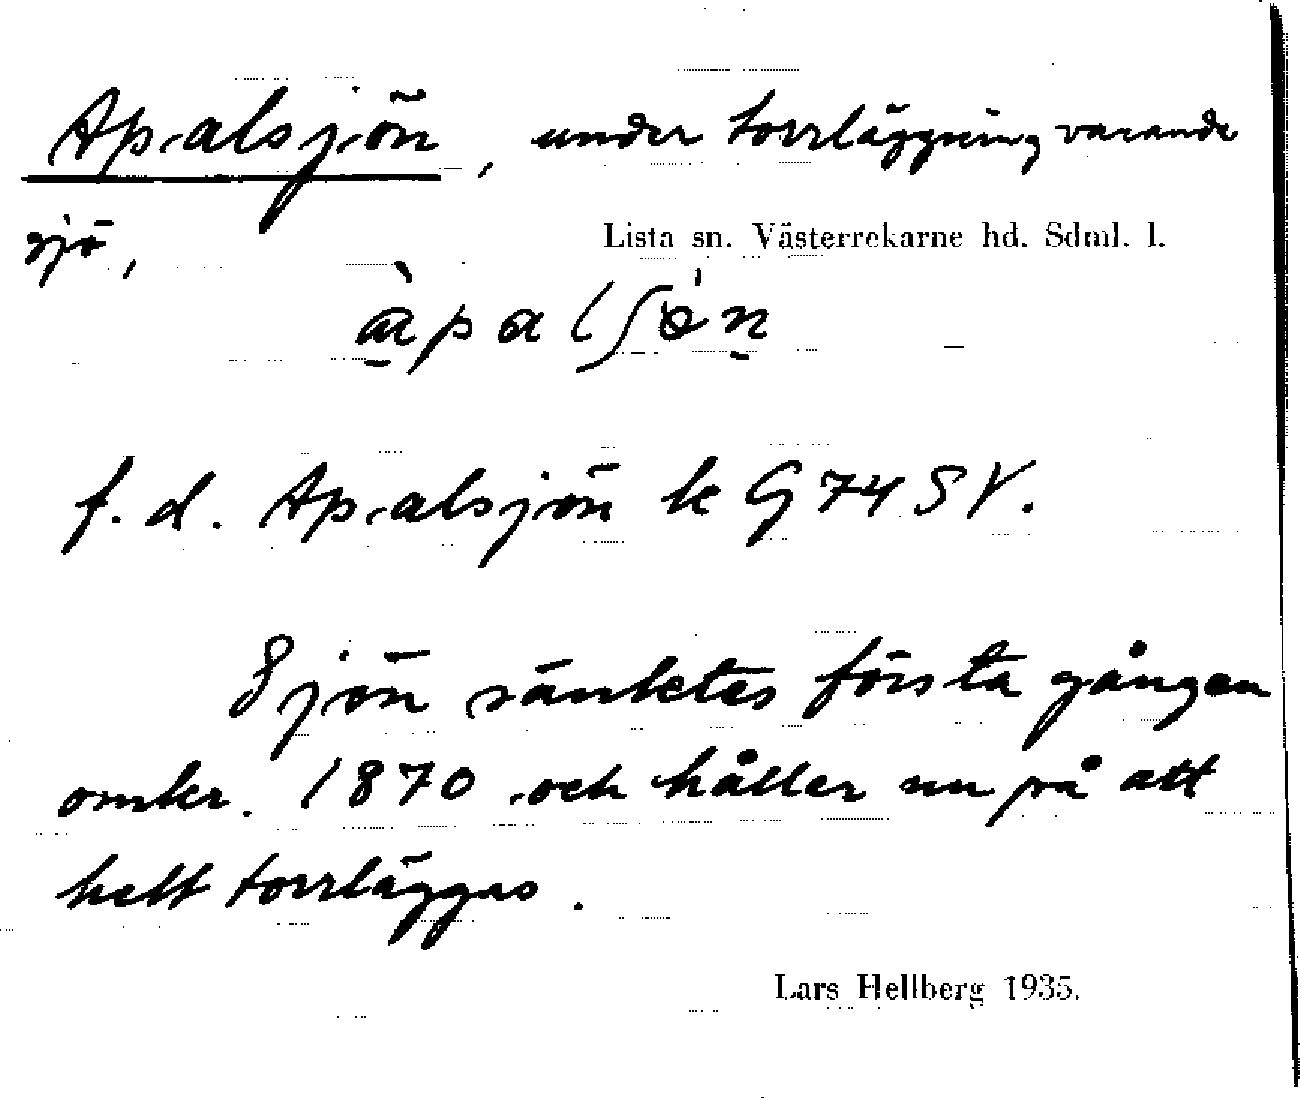 Apalsjön, under torrläggning varande
sjö,
Lista sn. Västerrekarne hd. Sdml. l.
f. d. Apalsjön k G 74 SV.
Sjön sänktes första gången
omkr. 1870 och håller nu på att
helt torrläggas.
Lars Hellberg 1935.